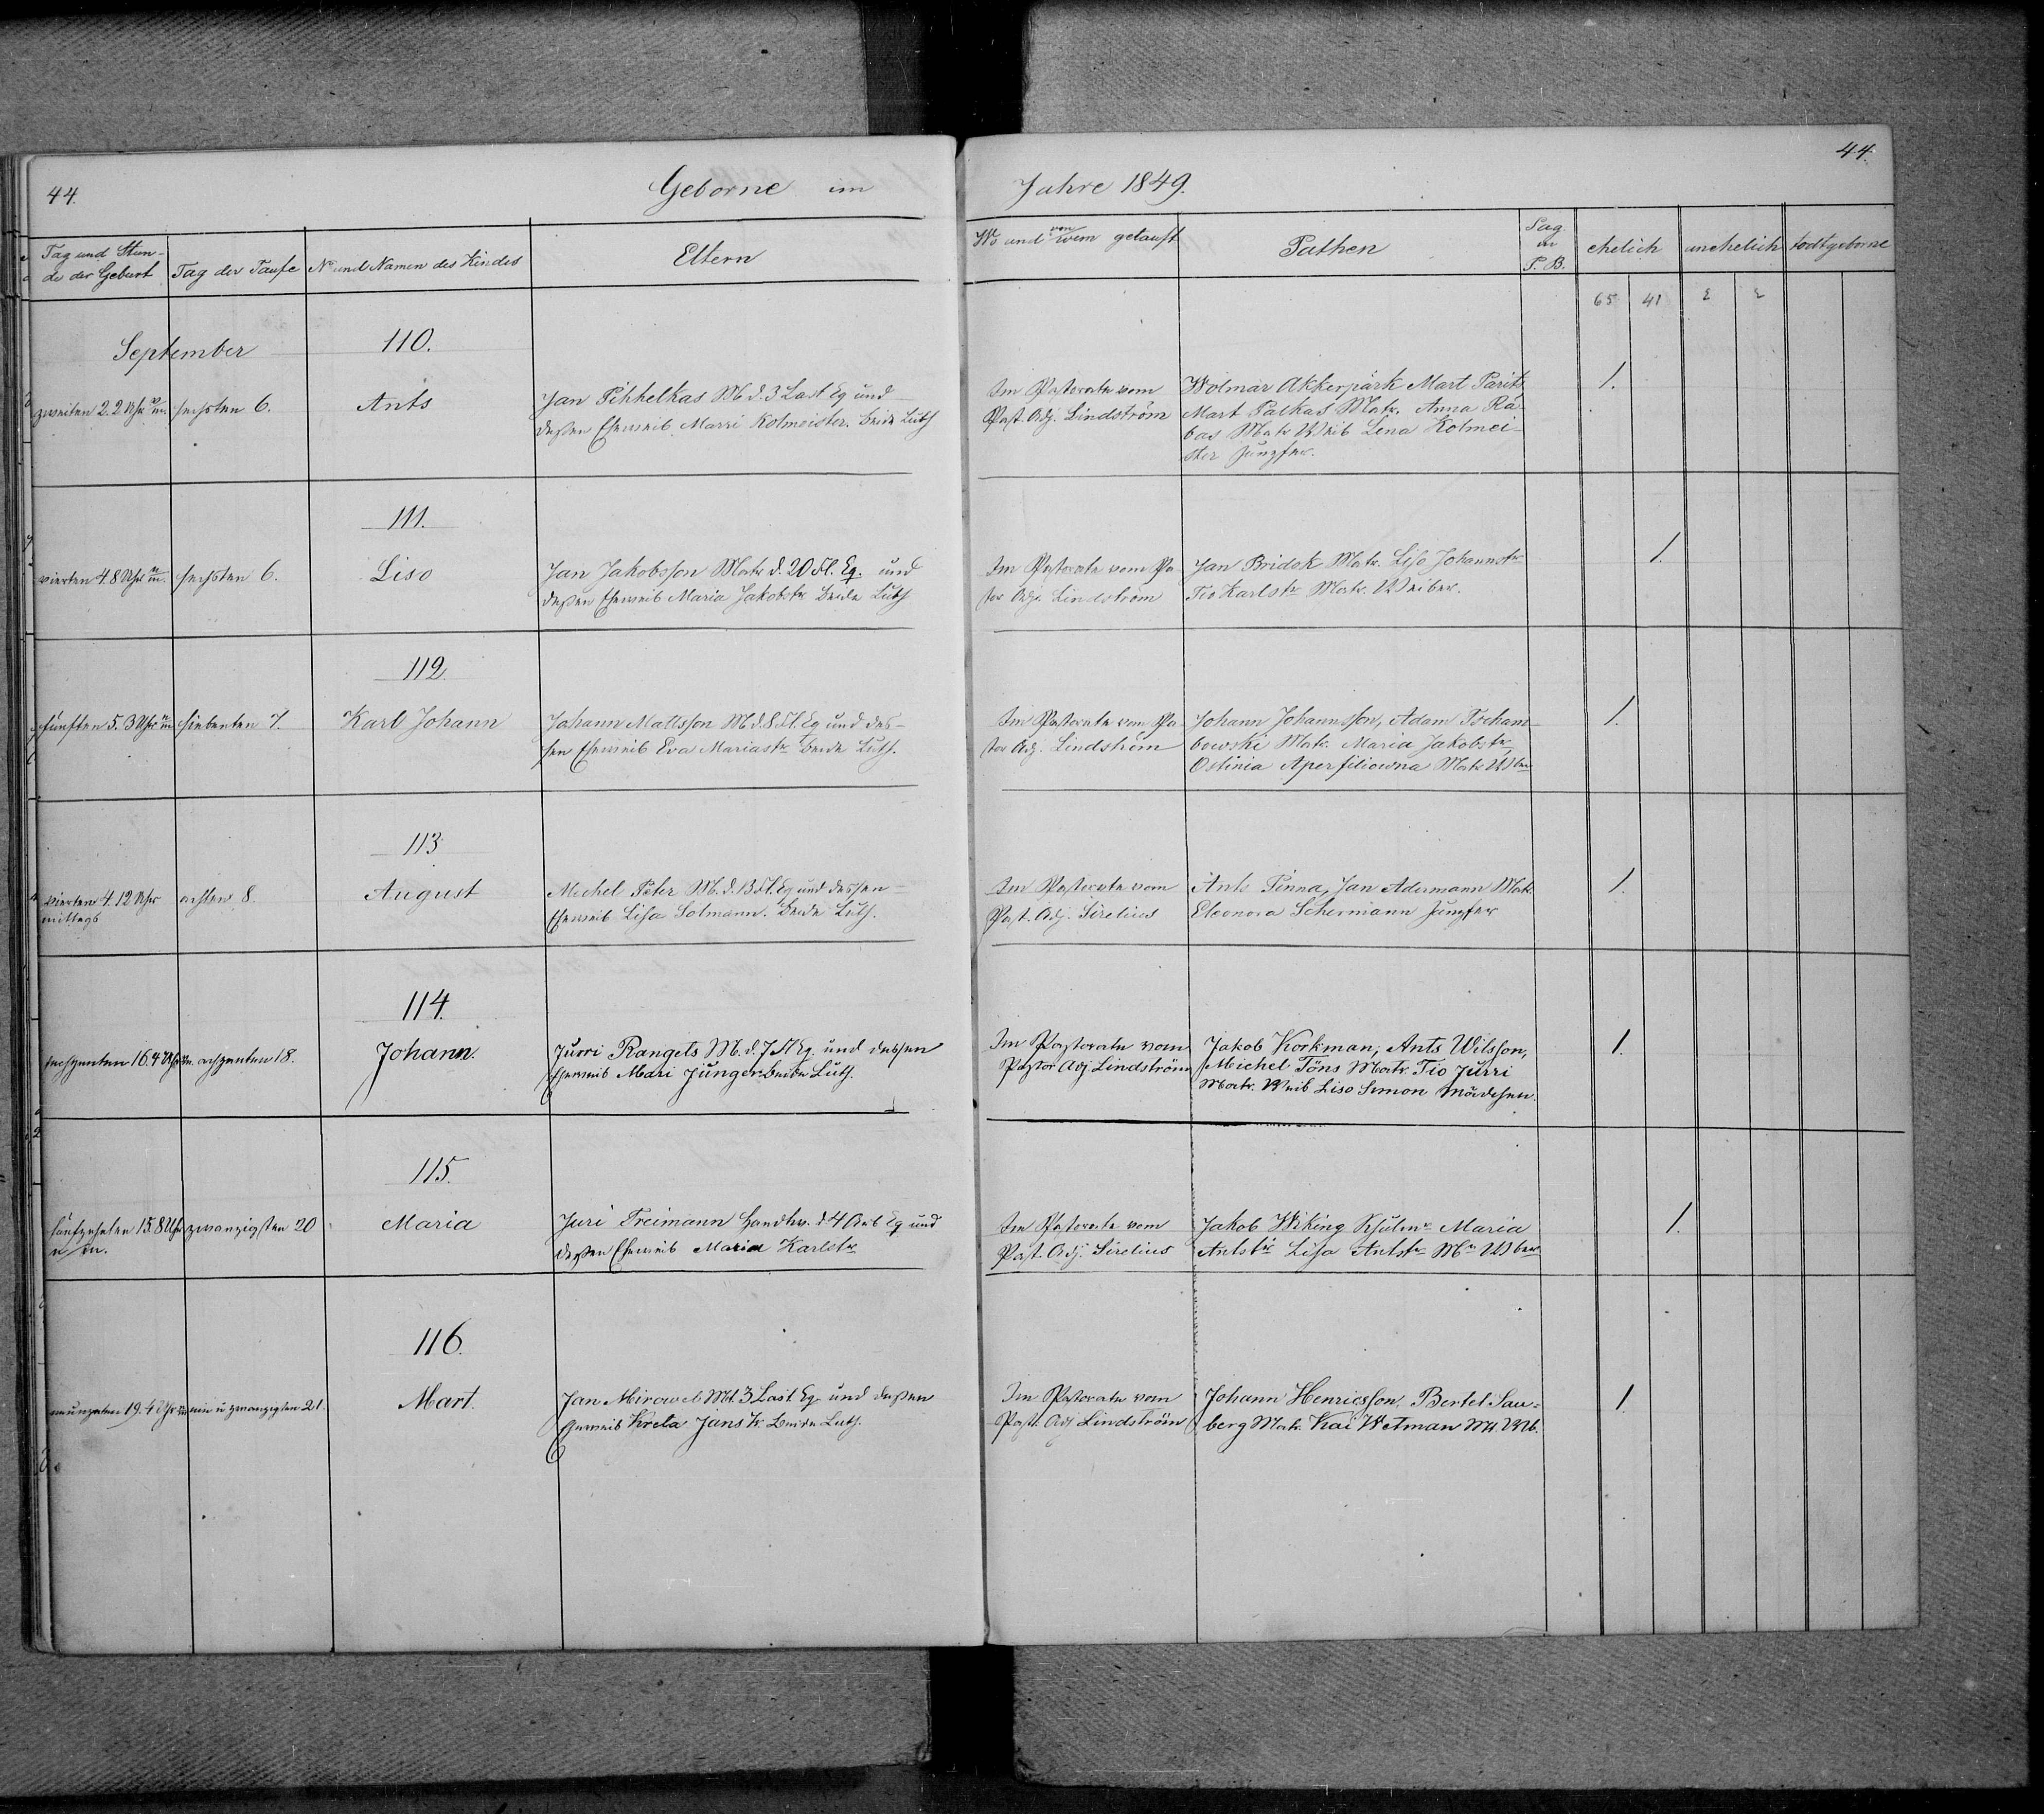 44.
44.
Geborne im Jahre 1849.
Tag und Stun-
de der Geburt
Tag der Taufe
No und Namen des Kindes
Eltern
Wo und von wem getauft
Pathen
Pag
in
P. B.
ehelich
unehelich
todtgeborne
65 41 2 2
September
110.
zweiten 2. 2 Uhr
sechsten 6.
Ants
Jan Pihhelkas M d. 3 Last Eq und
dessen Eheweib Marri Kolmeister. beide Luth
Im Pastorate vom
Past. Adj. Lindström
Wolmar Akkerpärk Mart Parits
Mart Palkas Matr. Anna Rä-
bas Matr Weib Lena Kolmei-
ster Jungfer.
1.
111.
vierten 4. 8 Uhr
sechsten 6.
Liso
Jan Jakobsson Matr d. 20 Fl. Eq. und
dessen Eheweib Maria Jakobstr beide Luth
Im Pastorate vom Pa-
stor Adj. Lindström
Jan Bridok Matr. Liso Johannstr
Tio Karlstr Matr. Weiber.
1.
112.
fünften 5. 3 Uhr
siebenten 7.
Karl Johann
Johann Mattsson M d. 8 Fl. Eq und des-
sen Eheweib Eva Mariastr beide Luth.
Im Pastorate vom Pa-
stor Adj. Lindström
Johann Johannsson, Adam Tscham-
bowski Matr. Maria Jakobstr,
Ostinia Aperfiliowna Matr Wber
1.
113
vierten 4. 12 Uhr
mittags
achten 8.
August
Michel Peter M. d. 13 Fl. Eq und dessen
Eheweib Lisa Solmann. beide Luth.
Im Pastorate vom
Past. Adj. Sirelius
Ants Pinna, Jan Adermann Matr
Eleonora Schermann Jungfer
1.
114.
sechzenten 16. 4 Uhr
achzenten 18.
Johann.
Jurri Rangets M. d. 7 Fl Eq. und dessen
Eheweib Mari Jünger beide Luth.
Im Pastorate vom
Pastor Adj. Lindström
Jakob Korkman, Ants Wilsson,
Michel Töns Matr. Tio Jurri
Matr. Weib Liso Simon Mädchen.
1.
115.
fünfzehnten 15. 8 Uhr
n m.
zwanzigsten 20
Maria
Juri Freimann Handw. d 4 Arb Eq und
dessen Eheweib Maria Karlstr
Im Pastorate vom
Past. Adj. Sirelius
Jakob Wiking Schulmr Maria
Antstr Lisa Antstr Mr Wber
1.
116.
neunzenten 19. 4 Uhr
ein u zwanzigsten 21.
Mart.
Jan Mirowel Md. 3 Last Eq und dessen
Eheweib Kreta Janstr beide Luth.
Im Pastorate vom
Past. Adj Lindström
Johann Henricsson. Bertel Sau-
berg Matr. Kai Wetman Mtr. Wb.
1.